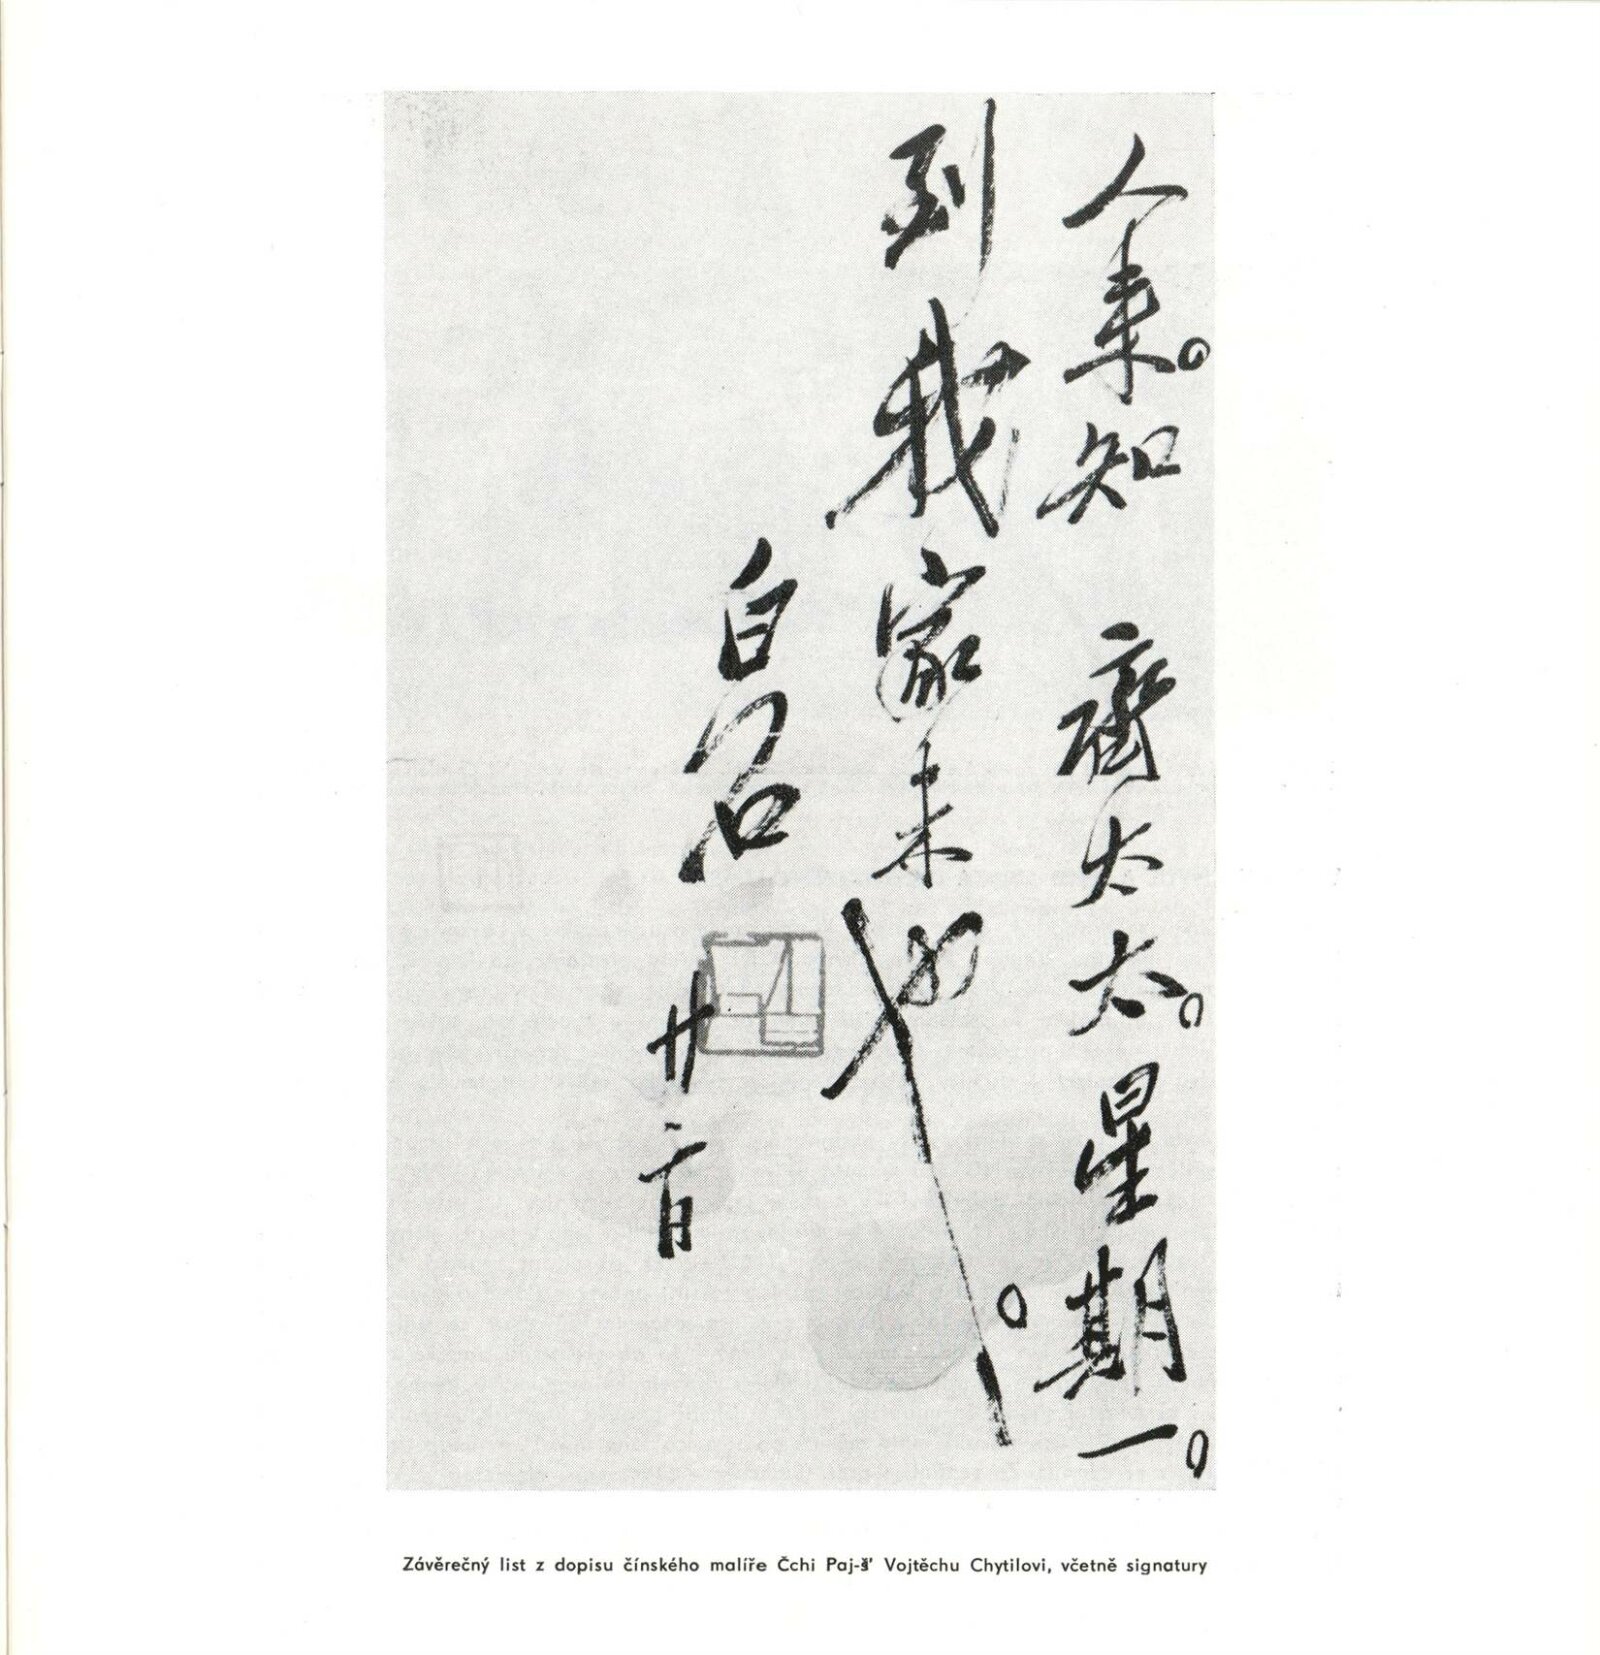 人来。知 齊太太。星期一。
到我家来。
白石
廿二日
Závěrečný list z dopisu čínského malíře Čchi Paj-š’ Vojtěchu Chytilovi, včetně signatury